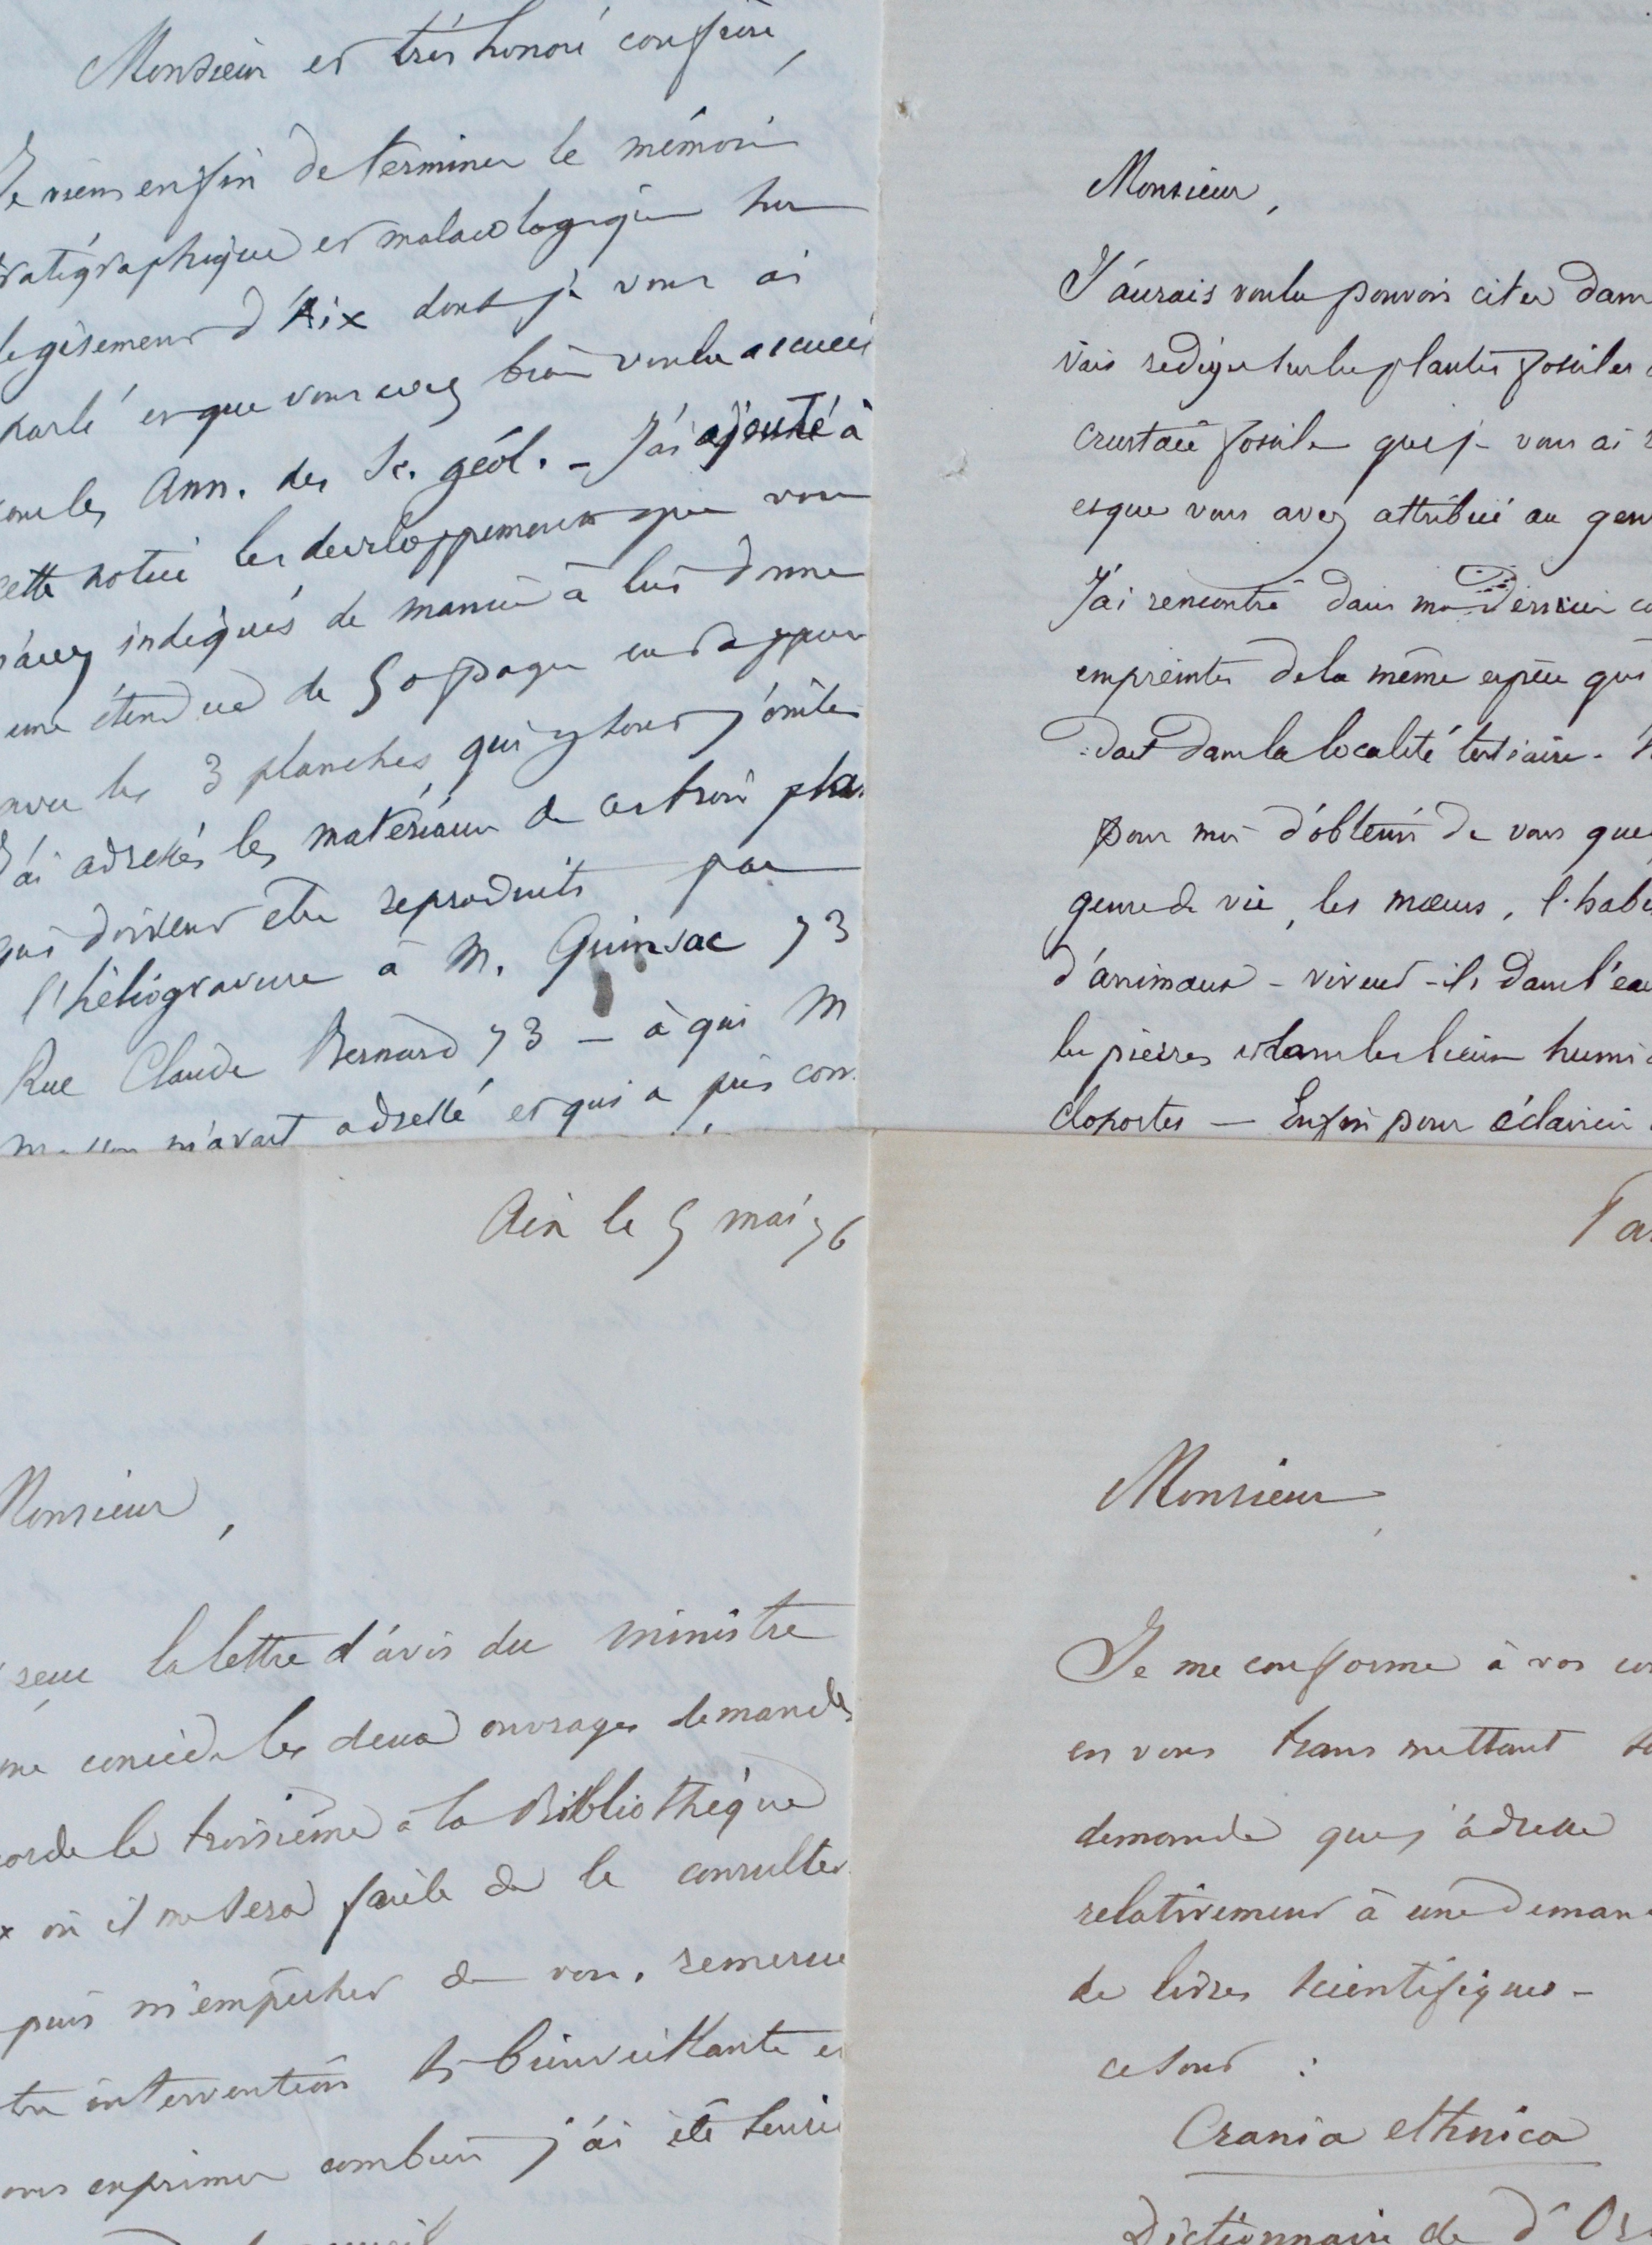 Monsieur et très honoré confrère,
Je viens enfin de terminer le mémoire
stratigraphique et malacologique sur
le gisement d'Aix dont je vous ai
parlé et que vous avez bien voulu accueil
pour les Ann. des Sc. géol. - J'ai ajouté à
cette notice les développements que vous
m'avez indiqués de manière à lui donner
une étendue de 50 pages en rapport
avec les 3 planches qui y sont jointes
J'ai adressés les matériaux de ces trois plan
qui doivent être reproduits par
l'héliogravure à M. Quinsac 73
Rue Claude Bernard 73 - à qui M
Masson m'avait adressé et qui a pris con
Monsieur,
J'aurais voulu pouvoir citer dans
vais rédiger sur les plantes fossiles
crustacé fossile que je vous ai
et que vous avez attribué au gen
J'ai rencontré dans ma dernière
empreintes de la même espèce qui
dait dans la localité tertiaire.
pour moi d'obtenir de vous quel
genre de vie, les mœurs, l'habi
d'animaux - vivent-ils dans l'eau
les pierres et dans les lieux humi
cloportes - Enfin pour éclaircir
Aix le 5 mai 76
Monsieur,
reçu la lettre d'avis du ministre
me concède les deux ouvrages demandés
corde le troisième à la Bibliothèque
x où il me sera facile de le consulter.
puis m'empêcher de vous remercier
tre intervention si bienveillante et
ous exprimer combien j'ai été heure
Monsieur,
Je me conforme à vos
en vous transmettant
demande que j'adresse
relativement à une deman
de livres scientifiques -
ce sont :
Crania ethnica
Dictionnaire de d'Or